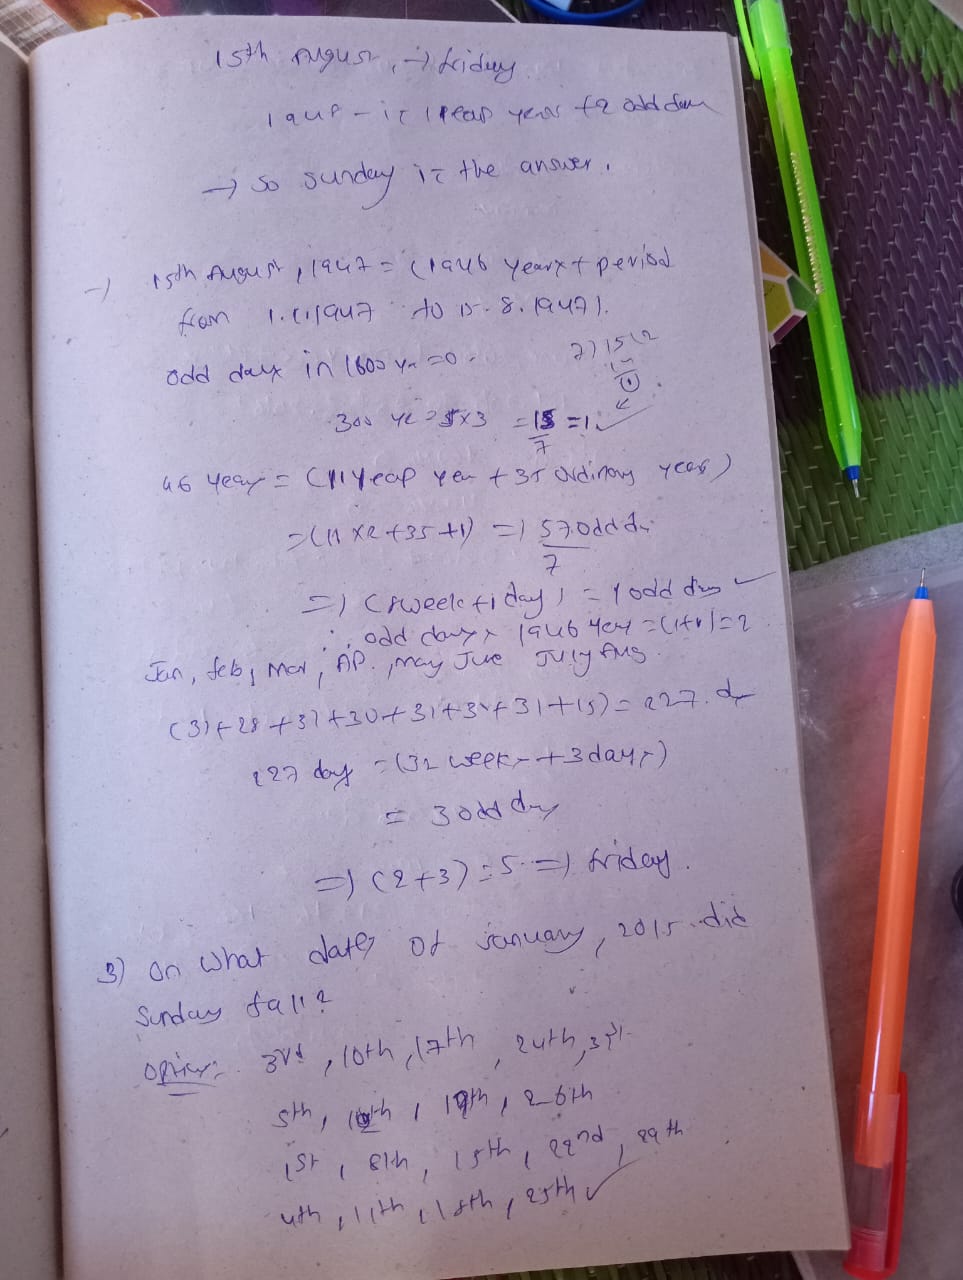 15th August, → friday
1948 - is leap year +2 odd day
→ so sunday is the answer.
→ 15th August, 1947 = (1946 years + period
from 1.1.1947 to 15.8.1947).
odd days in 1600 yr = 0.
7)15(2
300 yr = 5x3 = 15/7 = 1 ✓
46 years = (11 leap year + 35 ordinary years)
= (11 x 2 + 35 + 1) => 57 odd
7
=> (8 week + 1 day) = 1 odd day ✓
∴ odd days 1946 year = (1+1) = 2
Jan, feb, mar, AP., may June July Aug
(31+28+31+30+31+30+31+15) = 227
227 day = (32 weeks + 3 days)
= 3 odd day
=> (2+3) = 5 => friday.
3) On what dates of january, 2015 did
Sunday fall?
Options: 3rd, 10th, 17th, 24th, 31
5th, 12th, 19th, 26th
1st, 8th, 15th, 22nd, 29th
4th, 11th, 18th, 25th ✓